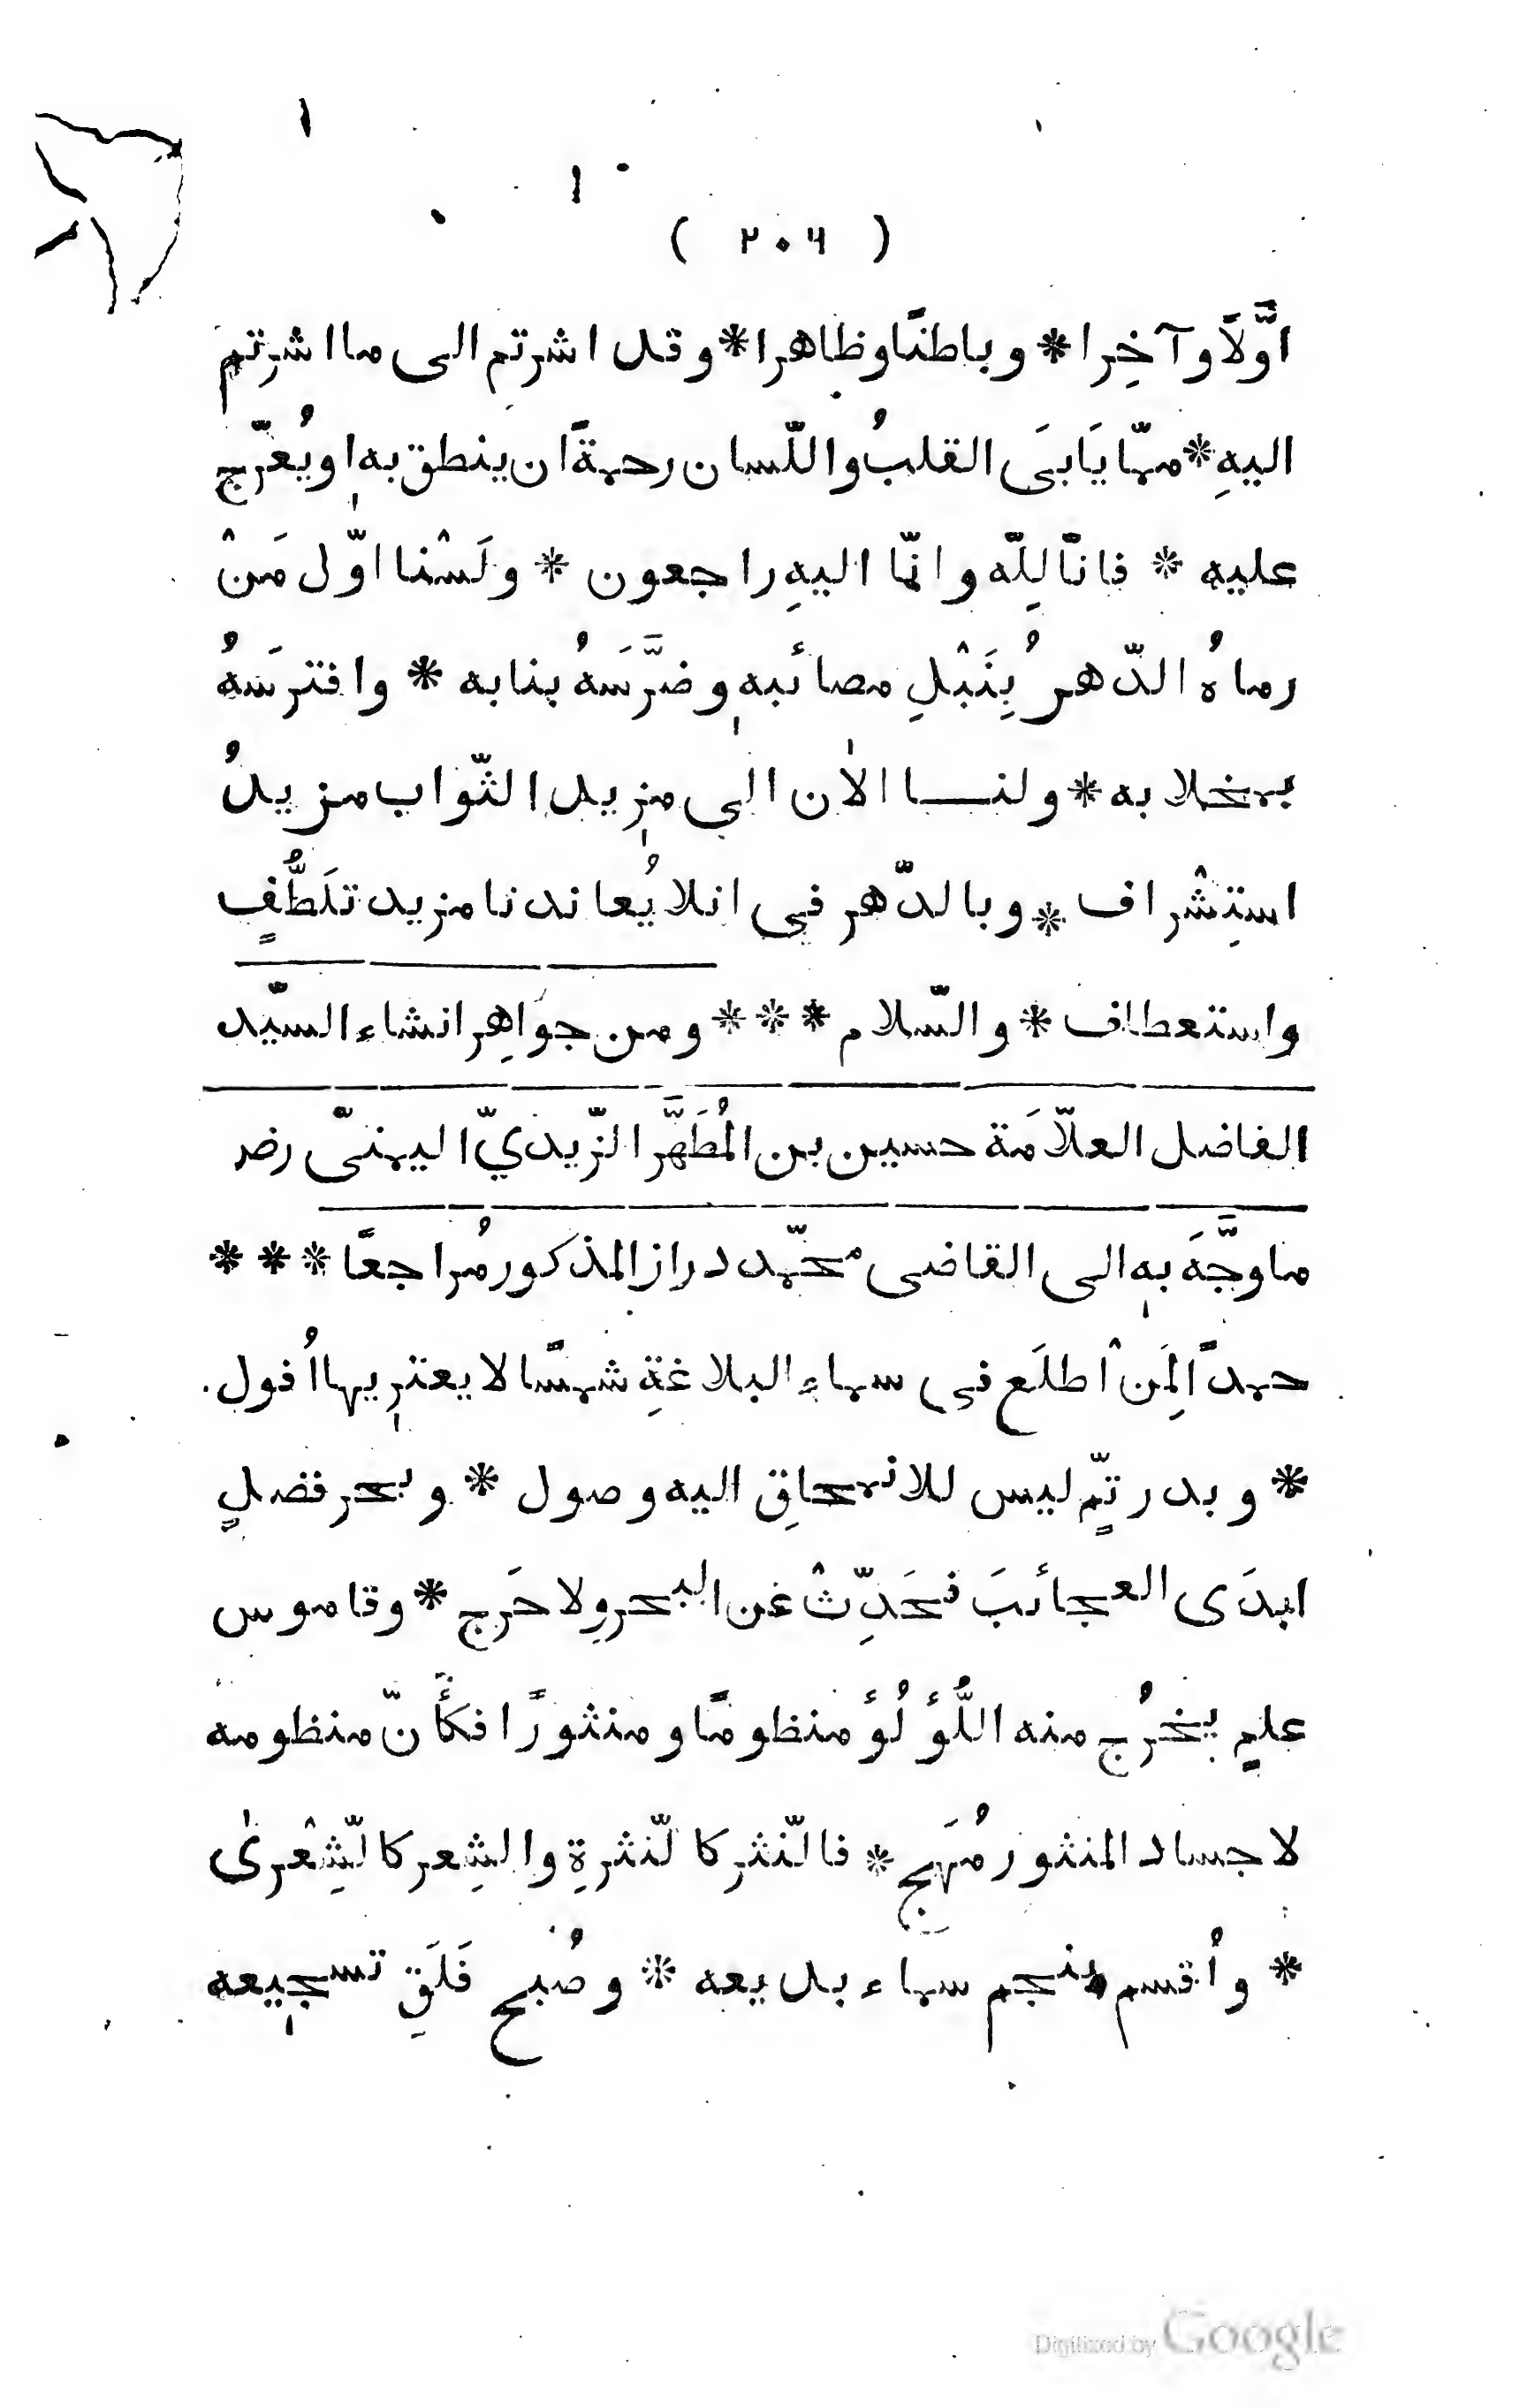 ( ٢٠٦ )
اوَّلًا وآخِرا * وباطنًا وظاهرا * وقد اشرتم الى ما اشرتم
اليهِ * ممّا يَابىَ القلبُ واللّسان رحمةً ان ينطق بهٖ او يُعرّج
عليه * فانّا لِلّه وانّا اليهِ راجعون * ولَسْنا اوّل مَنْ
رماهُ الدّهرُ بِنَبْلِ مصائبهٖ وضَّرَسَهُ بنابه * وافترسَهُ
بمخلابه * ولنا الاٰن الى مزٖيد الثّواب مزيدُ
استِشْراف * وبالدّهر فى انلا يُعاندنا مزيد تلَطُّفٍ
واستعطاف * والسّلام * * * ومن جوَاهِر انشاء السيّد
الفاضل العلّامَة حسين بن المُطَهَّر الزّيديّ اليمنىّ رضـ
ما وجَّهَ بهٖ الى القاضى محمّد دراز المذكور مُراجعًا * * *
حمدًا لِمَنْ اطلَع فى سماءِ البلاغةِ شمسًا لا يعترٖيها اُفول
* وبدر تمٍّ ليس للانمحاقِ اليه وصول * وبحر فضلٍ
ابدَى العجائبَ فحَدِّثْ عَن البحرِ ولا حَرج * وقاموس
علمٍ يخرُج منه اللُّؤلُؤ منظومًا ومنثورًا فكأنّ منظومه
لاجساد المنثور مُهَج * فالنّثر كالنّثرةِ والشِعر كالشِّعْرىٰ
* واُقسم بنجم سماء بديعه * وصُبح فَلَقِ تسجيعه
Digitized by Google